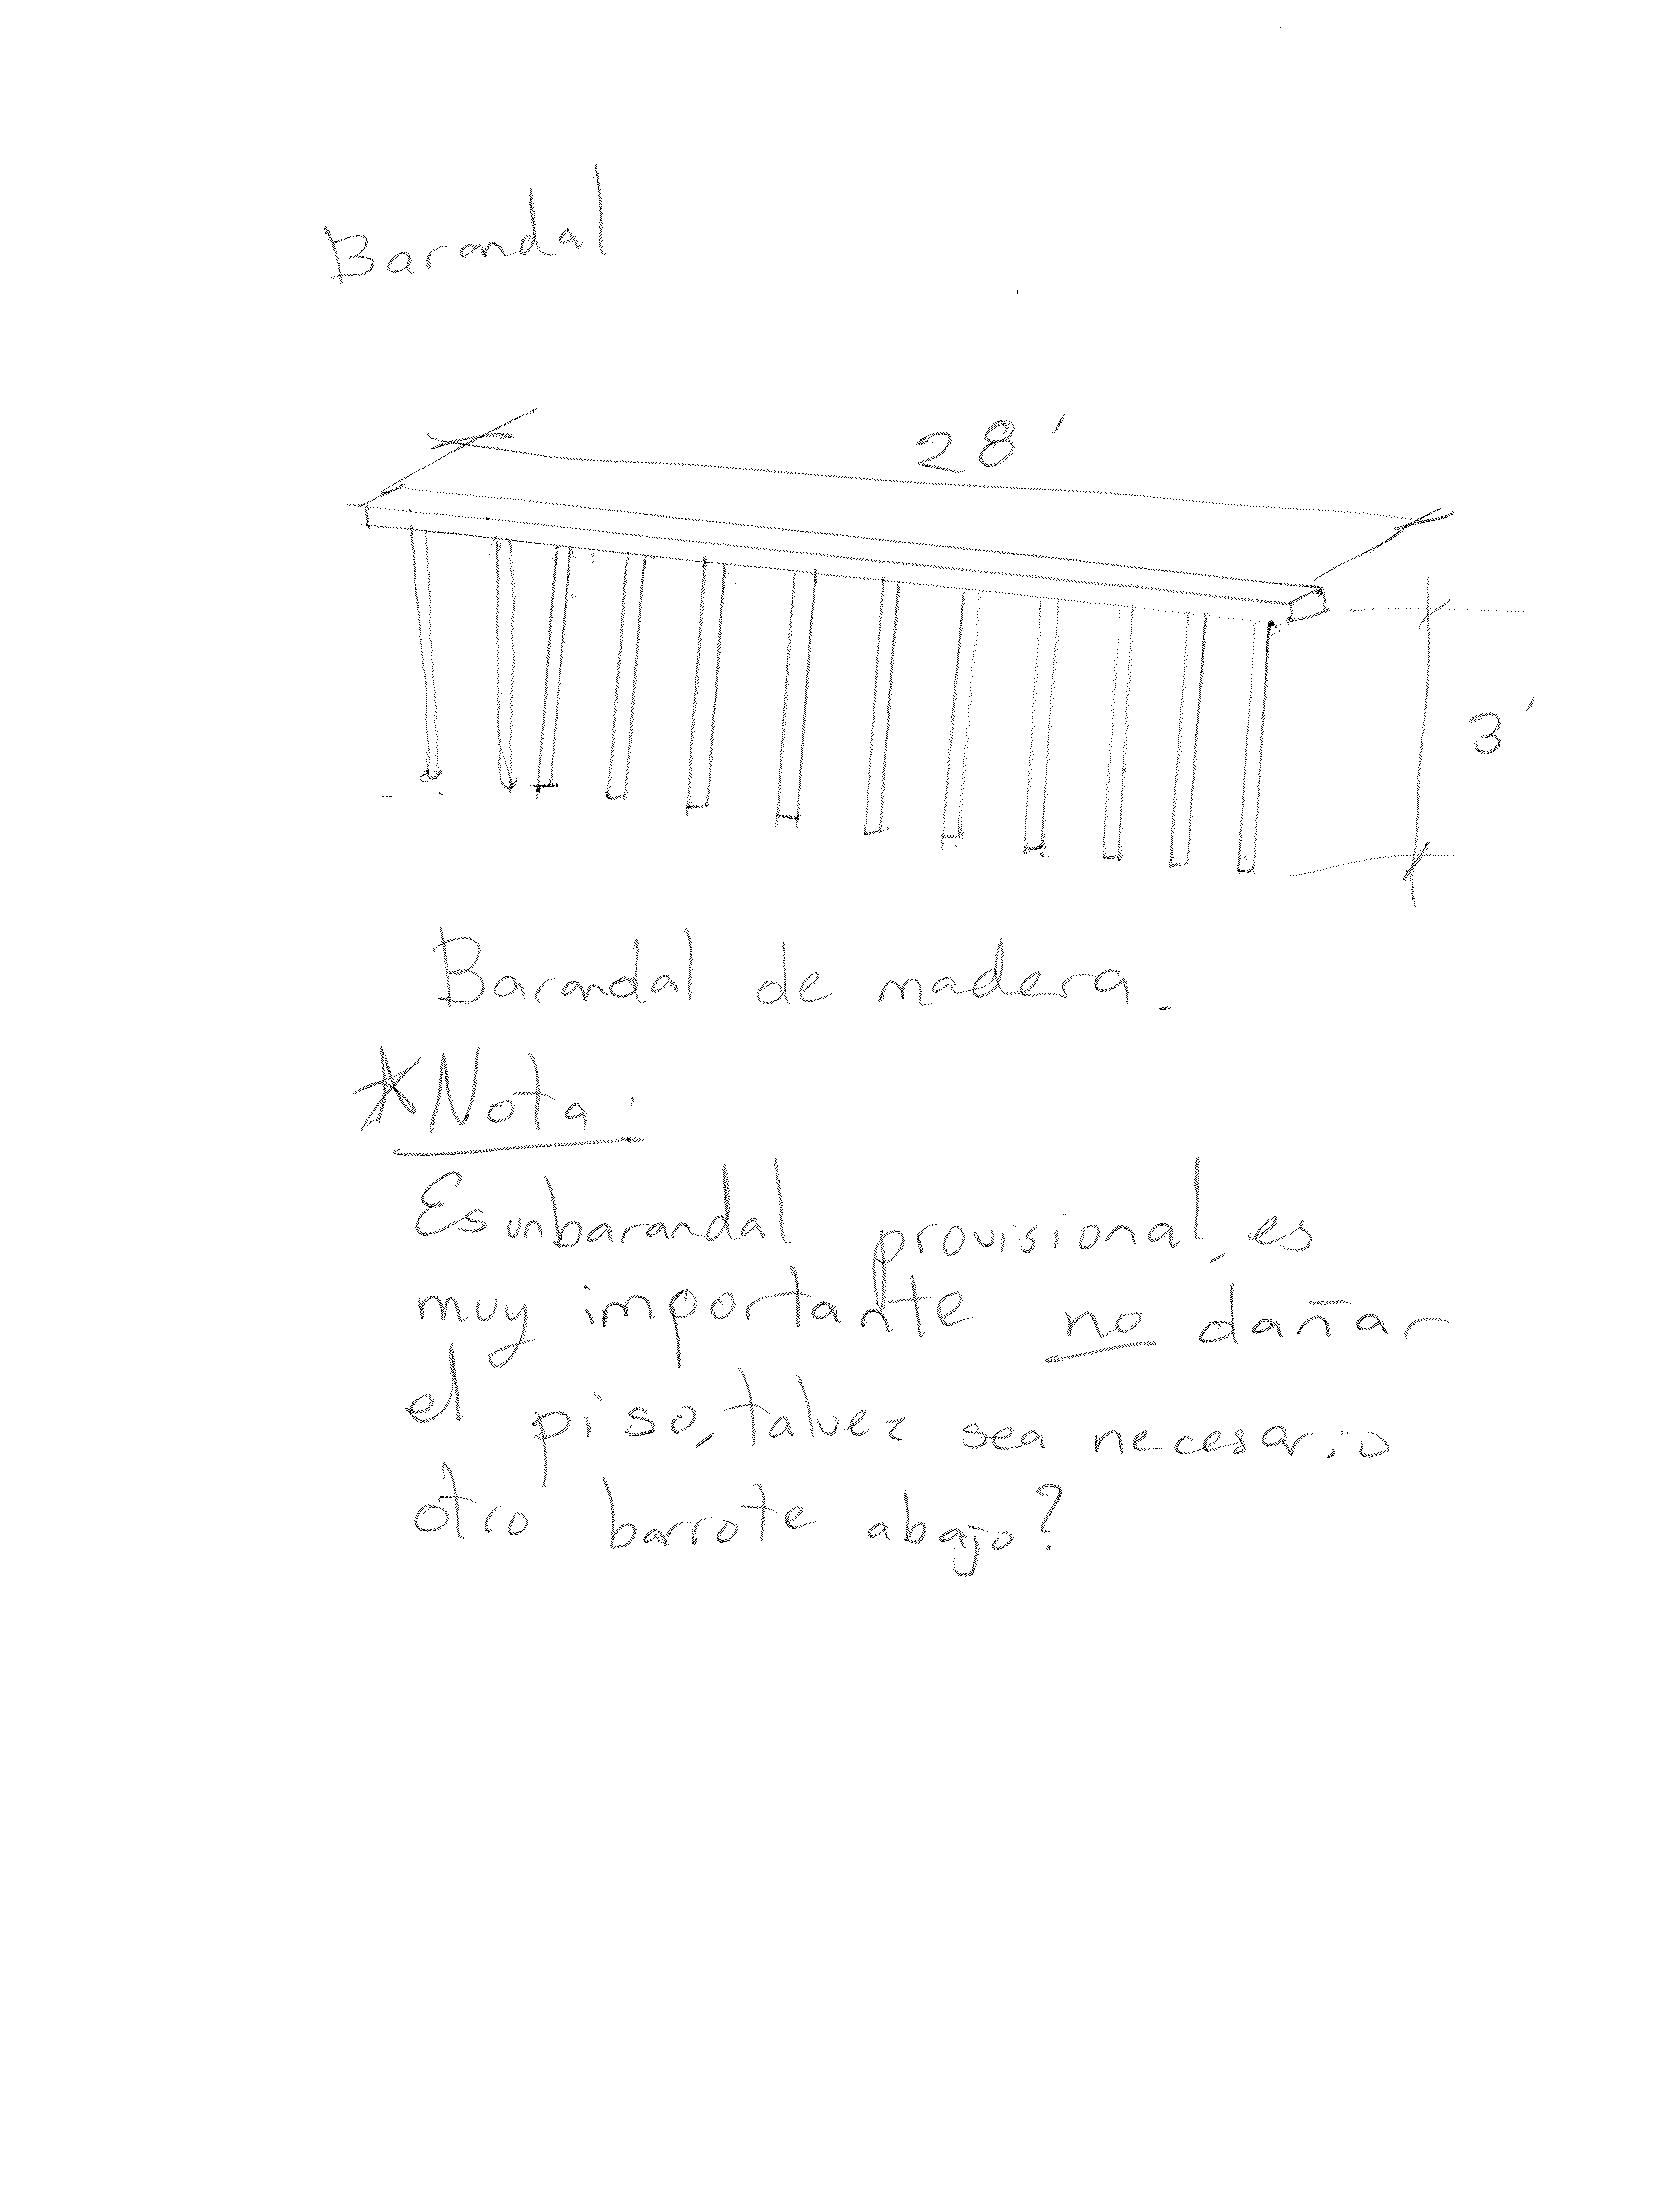 Barandal
28'
3'
Barandal de madera.
*Nota:
Es un barandal provisional, es
muy importante no dañar
el piso, talvez sea necesario
otro barrote abajo?